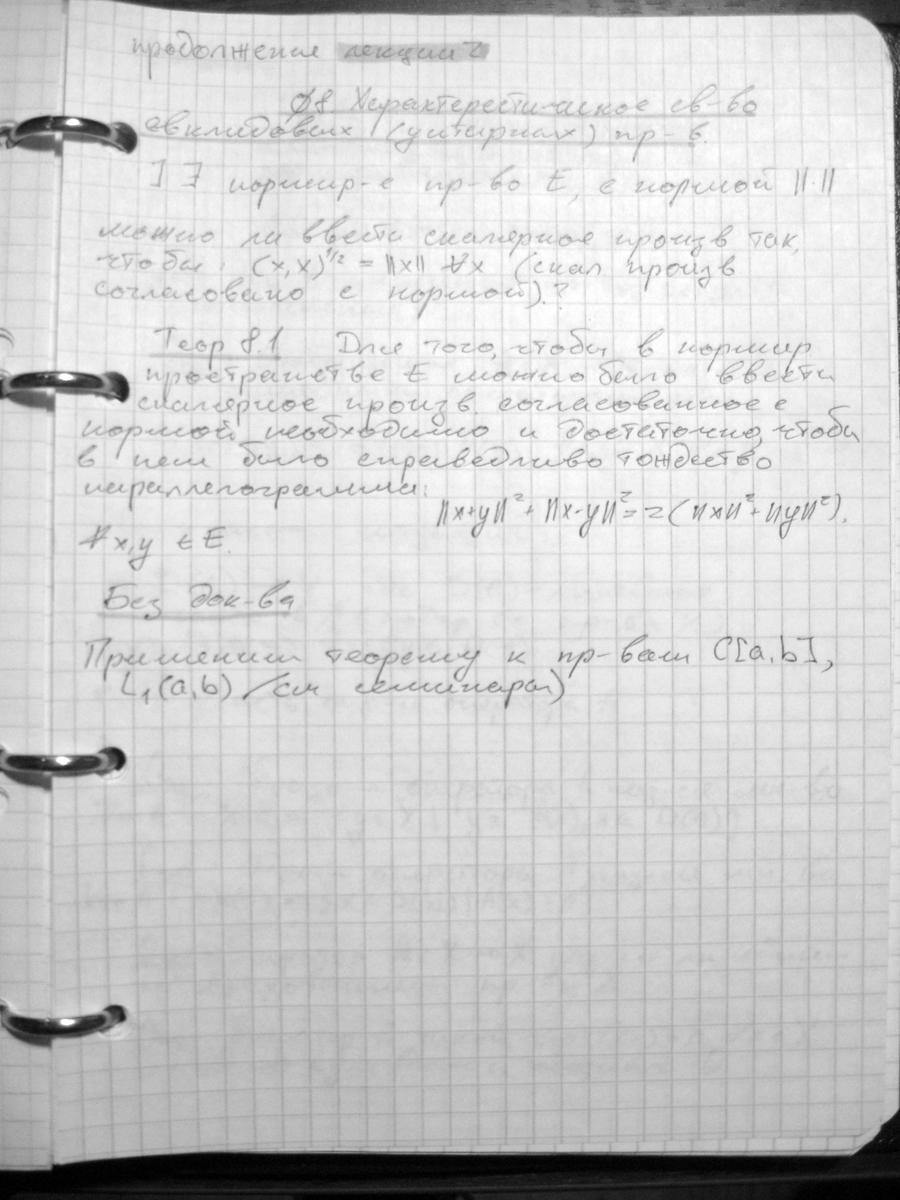 продолжение лекции 2
§8 Характерестическое св-во
евклидовых (унитарных) пр-в.
] ∃ нормир-е пр-во E, с нормой ||·||
можно ли ввести скалярное произв так,
чтобы: (x,x)^1/2 = ||x|| ∀x (скал произв
согласовано с нормой).?
Теор 8.1 Для того, чтобы в нормир
пространстве E можно было ввести
скалярное произв. согласованное с
нормой необходимо и достаточно, чтобы
в нем было справедливо тождество
параллелограмма:
||x+y||² + ||x-y||² = 2(||x||² + ||y||²).
∀ x,y ∈ E.
Без док-ва
Применим теорему к пр-вам C[a,b],
L₁(a,b) /см семинары)